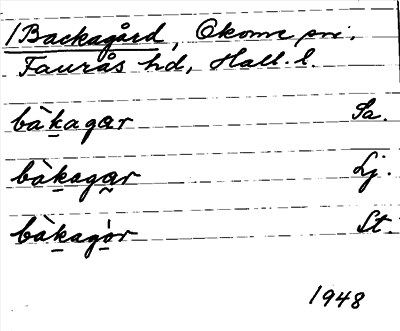 /Backagård, Okome sn.
Faurås hd, Hall. l.
bàkagar Sa.
bàkagar Lj.
bàkagòr St.
1948